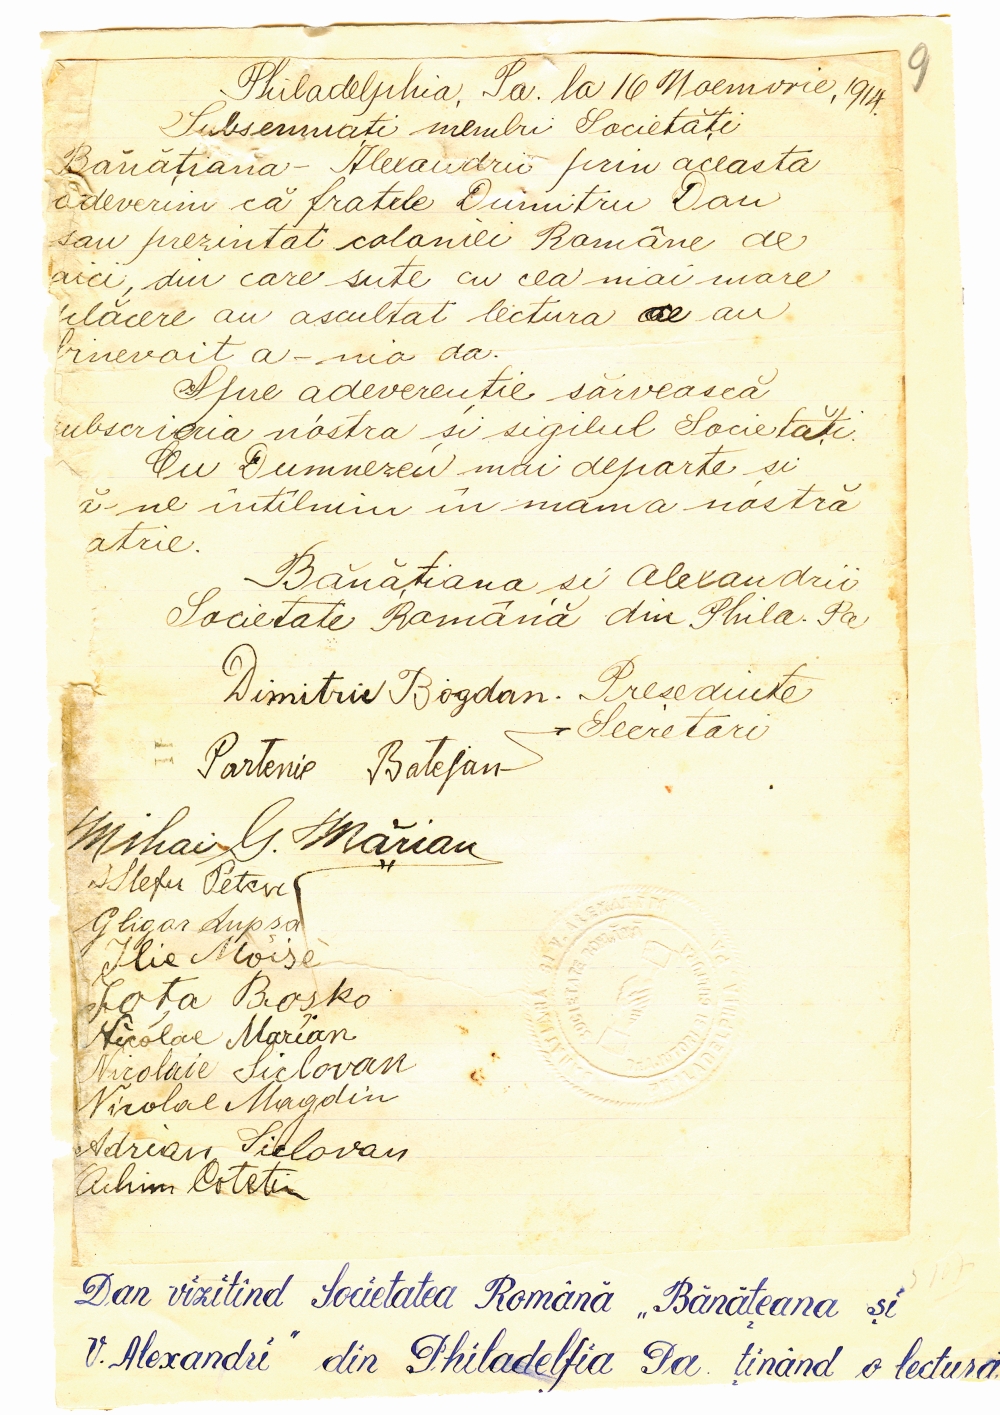 9
Philadelphia, Pa. la 16 Noemvrie, 1914.
Subsemnați membri Societăți
Bănățiana - Alexandrii prin aceasta
adeverim că fratele Dumitru Dan
sau prezintat coloniei Române de
aici, din care sute cu cea mai mare
plăcere au ascultat lectura ce au
binevoit a-nia da.
Spre adeverenție sărvească
subscrieria nóstra și sigilul Societăți.
Cu Dumnezeu mai departe si
ă-ne intîlnim in mama nóstră
atrie.
Bănățiana si Alexandrii
Societate Română din Phila. Pa
Dimitrie Bogdan. Presedinte
Secretari
Partenie Batejan
Mihai G. Mărian
Stefu Peter
Gligor Lupsa
Ilie Moise
Iota Bosko
Nicolae Marian
Nicolaie Siclovan
Nicolae Magdin
Adrian Siclovan
Achim Cotetin
Dan vizitînd Societatea Română „Bănățeana și
V. Alexandri" din Philadelfia Pa. ținând o lectură